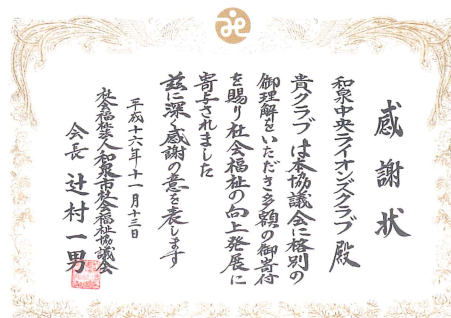 感謝状
和泉中央ライオンズクラブ殿
貴クラブは本協議会に格別の
御理解をいただき多額の御寄付
を賜り社会福祉の向上発展に
寄与されました
茲に深く感謝の意を表します
平成十六年十一月十三日
社会福祉法人和泉市社会福祉協議会
会長 辻村一男